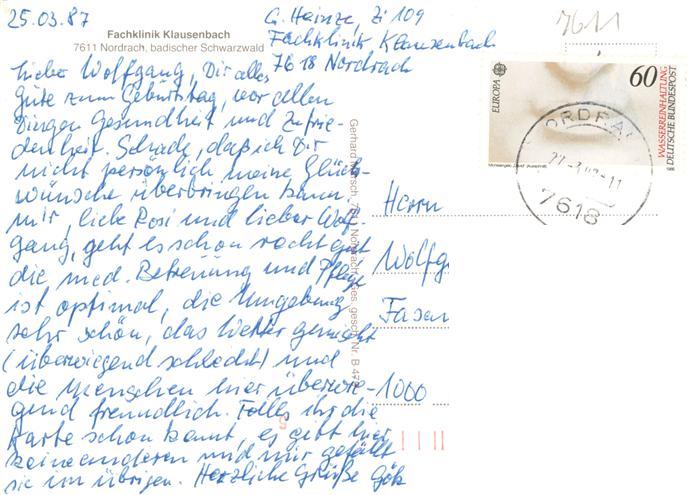 25.03.87
G. Heinze, Zi 109
Fachklinik Klausenbach
7618 Nordrach
7611
Fachklinik Klausenbach
7611 Nordrach, badischer Schwarzwald
Lieber Wolfgang, Dir alles
Gute zum Geburtstag, vor allen
Dingen Gesundheit und Zufrie-
denheit. Schade, daß ich Dir
nicht persönlich meine Glück-
wünsche überbringen kann.
Mir, liebe Rosi und lieber Wolf-
gang, geht es schon recht gut
die med. Betreuung und Pflege
ist optimal, die Umgebung
sehr schön, das Wetter gemischt
(überwiegend schlecht) und
die Menschen hier überwie-
gend freundlich. Falls ihr die
Karte schon kennt, es gibt hier
keine anderen und mir gefällt
sie im übrigen. Herzliche Grüße
EUROPA
60
WASSERREINHALTUNG
DEUTSCHE BUNDESPOST
ORDRA
7618
Herrn
Wolfg
Fasan
1000